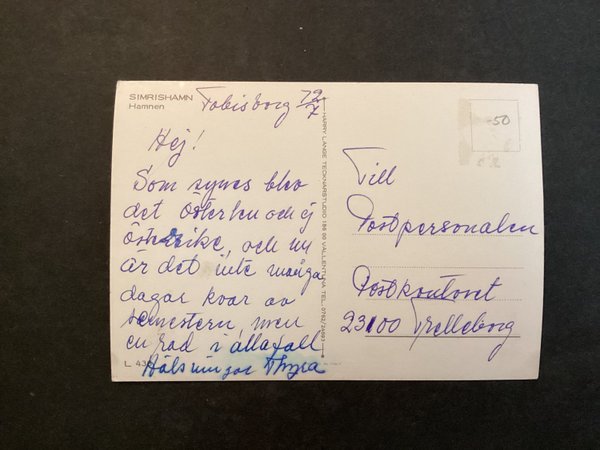 SIMRISHAMN
Hamnen
Tobisborg
Hej!
Som synes blev
det Österlen och ej
Österrike, och nu
är det inte många
dagar kvar av
semestern, men
en rad i allafall
Hälsningar Thyra
L 43
HARRY LANGE TECKNARSTUDIO 186 00 VALLENTUNA TEL.
-50
Till
Postpersonalen
Postkontoret
23100 Trelleborg